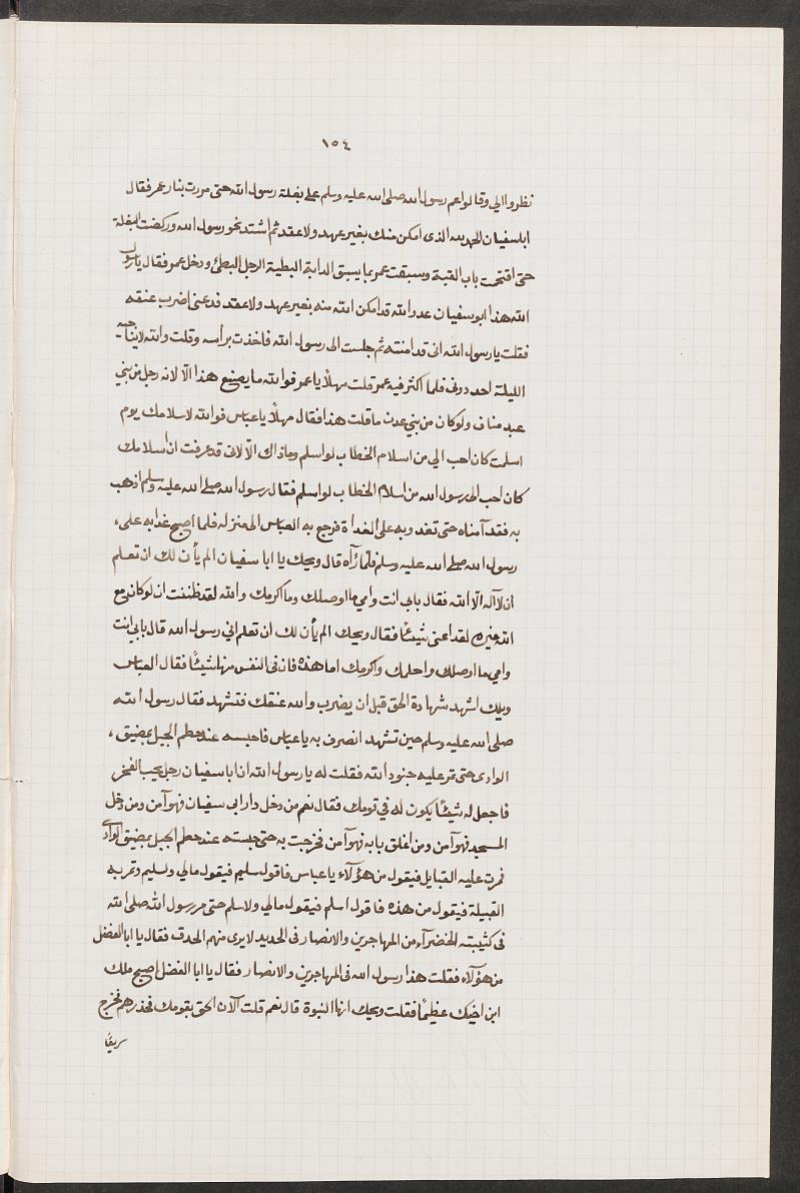 ١٥٤
نظروا الي وقالوا عم رسول الله صلى الله عليه وسلم على بغلة رسول الله حتى مررت بنار عمر فقال
ابلسفيان الحمد لله الذى امكن منك بغير عهد ولا عقد ثم اشتد نحو رسول الله وركضت البغلة
حتى اقتحمت باب القبة وسبقت عمر بما يسبق الدابة البطية الرجل البطئ ودخل عمر فقال يارسول
الله هذا ابو سفيان عدو الله قد امكن الله منه بغير عهد ولا عقد فدعنى اضرب عنقه
فقلت يا رسول الله انى قد امنته ثم جلست الى رسول الله فاخذت براسه وقلت والله لايناجيه
الليلة احد دونى فلما اكثر فيه عمر قلت مهلًا يا عمر فوالله ما يصنع هذا الّا لانه رجل من بني
عبد مناف ولو كان من بني عدى ما قلت هذا فقال مهلًا يا عباس فوالله لاسلامك يوم
اسلمت كان احب الي من اسلام الخطاب لو اسلم وماذاك الّا لانى قد عرفت ان اسلامك
كان احب الى رسول الله من اسلام الخطاب لو اسلم فقال رسول الله صلى الله عليه وسلم اذهب
به فقد آمناه حتى تغدو به على الغداة فرجع به العباس الى منزله فلما اصبح غدا به على،
رسول الله صلى الله عليه وسلم فلمّا رآه قال ويحك يا ابا سفيان الم يأن لك ان تعلم
ان لا آله الّا الله فقال بابي انت وامي ما اوصلك وما اكرمك والله لقد ظننت ان لو كان مع
الله غيره لقد اغنى شيئًا فقال ويحك الم يأن لك ان تعلم اني رسول الله قال بابي انت
وامي ما اوصلك واحلمك واكرمك اما هذه فان فى النفس منها شيئًا فقال العباس
ويلك اشهد شهادة الحق قبل ان يضرب والله عنقك فتشهد فقال رسول الله
صلى الله عليه وسلم حين تشهد انصرف به يا عباس فاحبسه عند حطم الجبل بمضيق،
الوادى حتى تمر عليه جنود الله فقلت له يا رسول الله ان ابا سفيان رجل يحب الفخر
فاجعل له شيئًا يكون له في قومك فقال نعم من دخل دار ابى سفيان فهو آمن ومن دخل
المسجد فهو آمن ومن اغلق بابه فهو آمن فخرجت به حتى حبسته عند حطم الجبل بمضيق الوادى
فمرت عليه القبايل فيقول من هؤلآء يا عباس فاقول سليم فيقول مالي ولسليم وتمر به
القبيلة فيقول من هذه فاقول اسلم فيقول مالي ولاسلم حتى مر رسول الله صلى الله
فى كتيبته الخضرآء من المهاجرين والانصار فى الحديد لا يرى منهم الحدق فقال يا ابا الفضل
من هؤلآء فقلت هذا رسول الله فى المهاجرين والانصار فقال يا ابا الفضل اصبح ملك
ابن اخيك عظيمًا فقلت ويحك انها النبوة قال نعم قلت الآن الحق بقومك فحذرهم فخرج
سريعًا